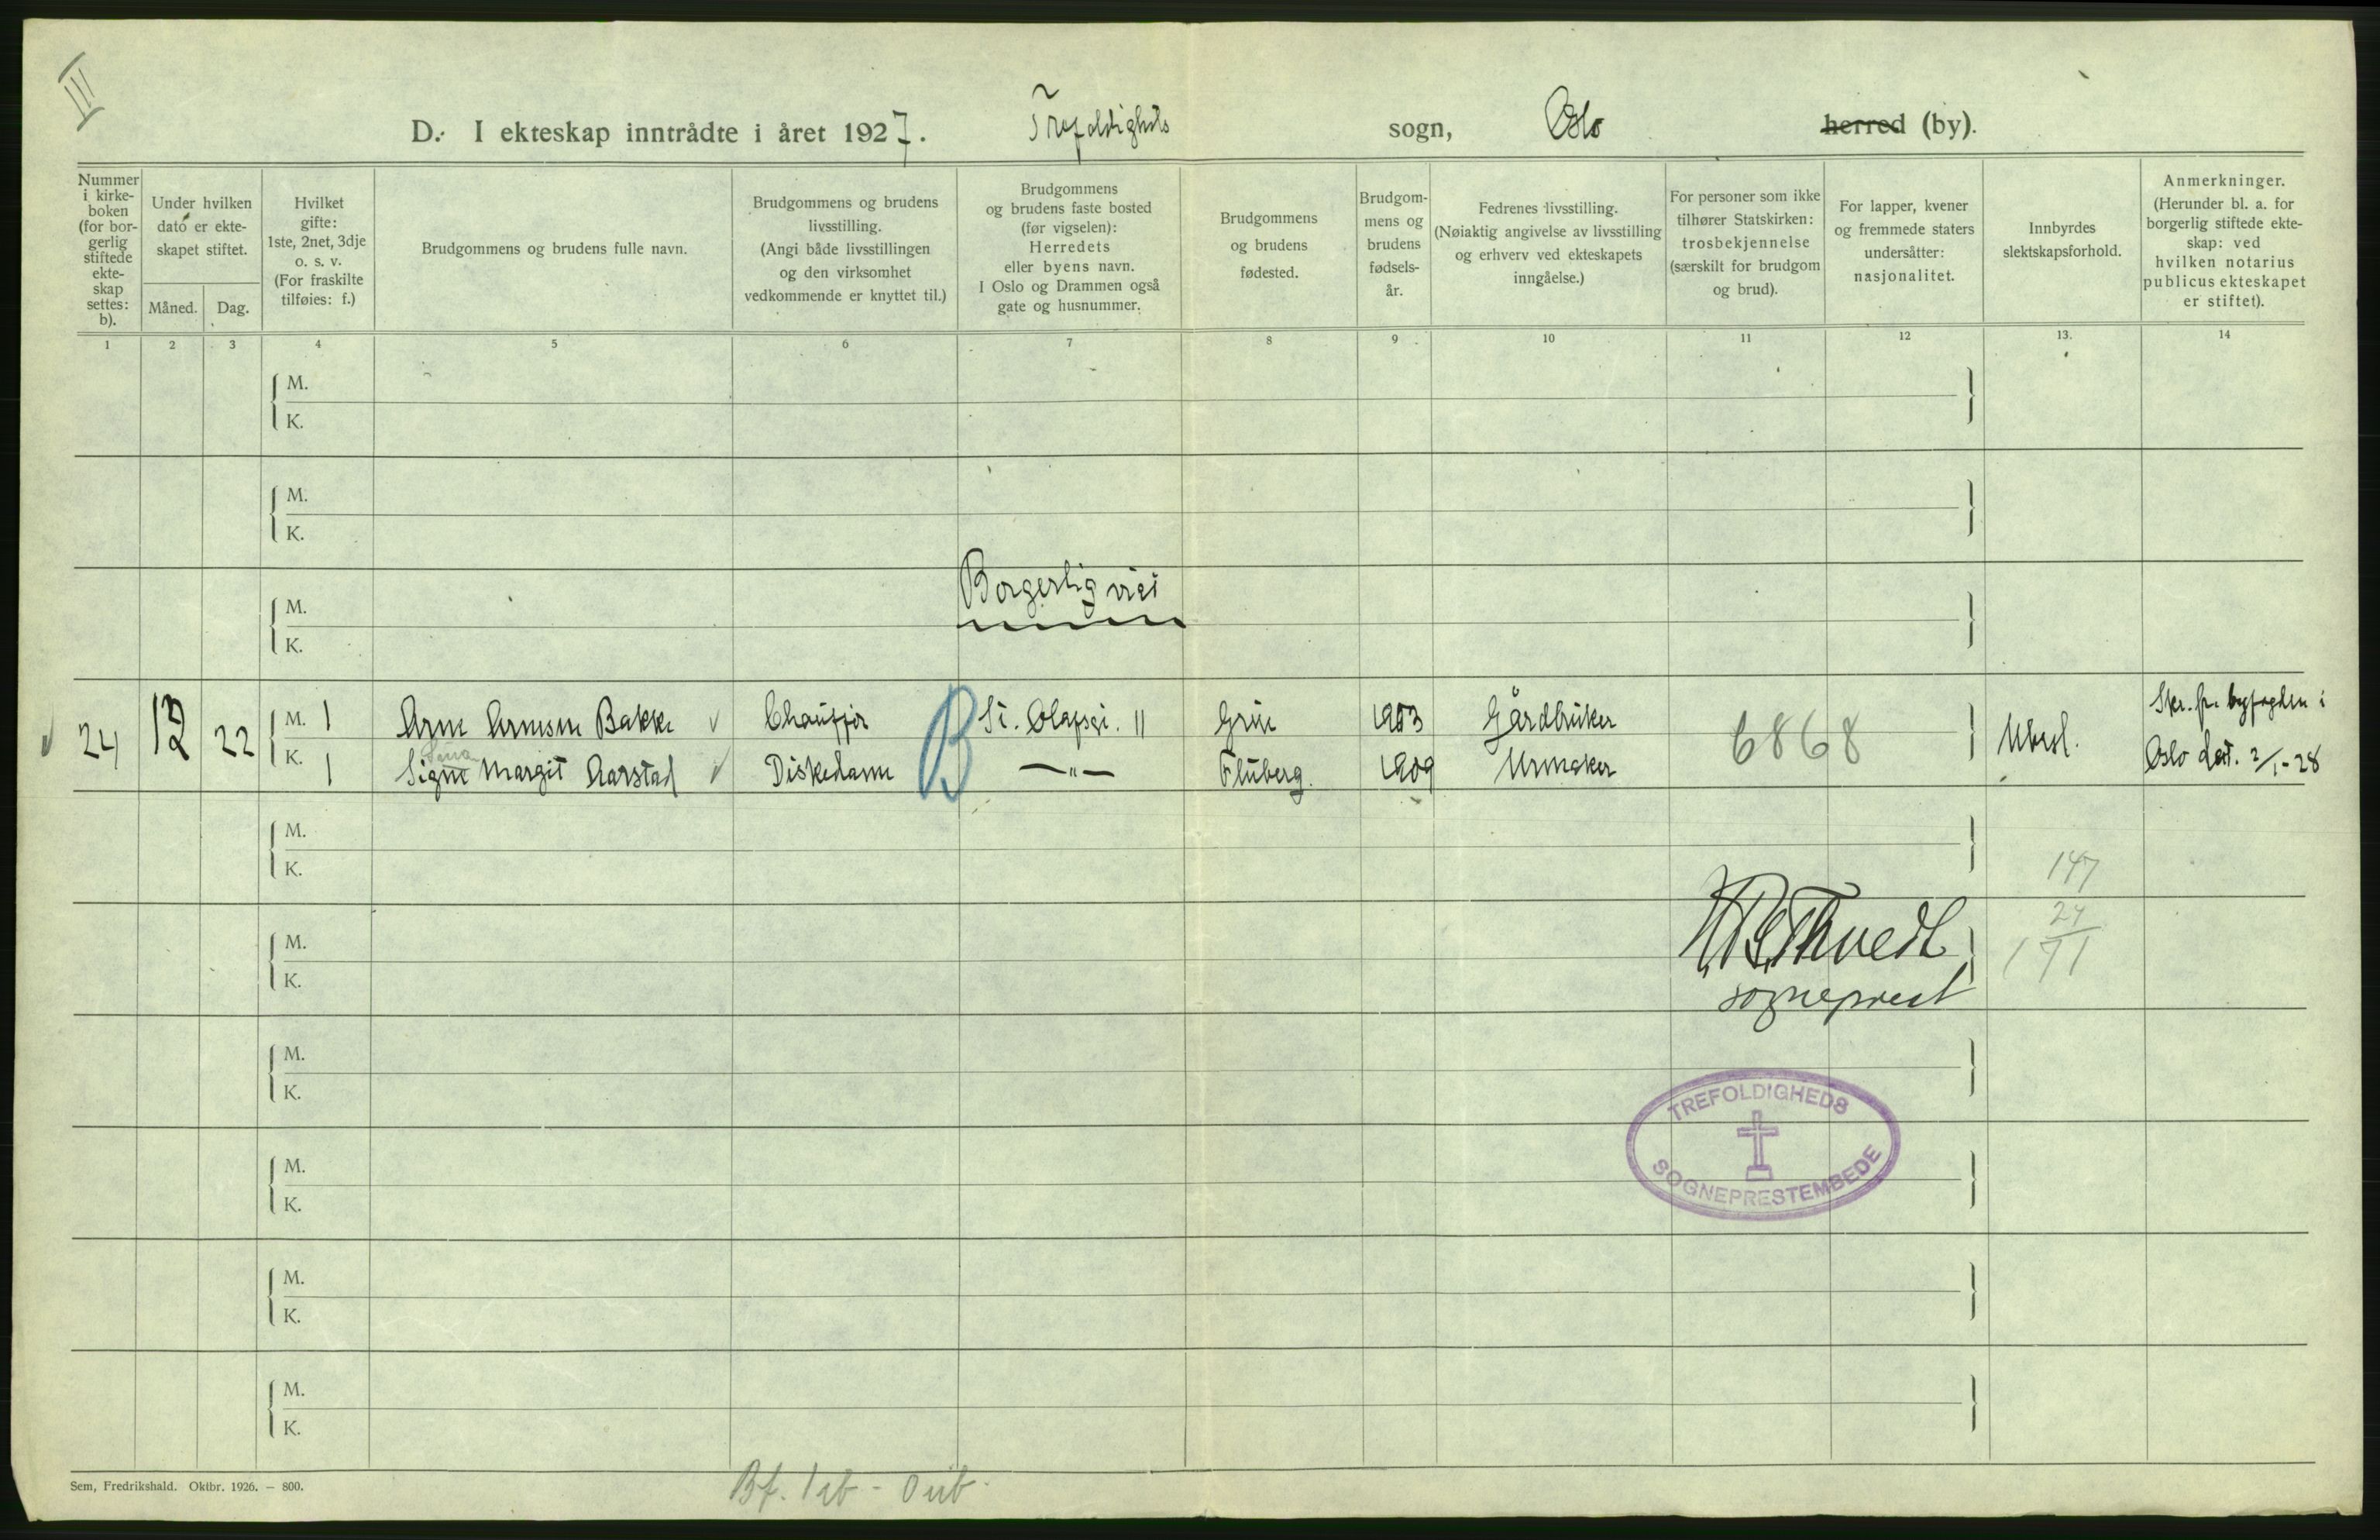 III
D. I ekteskap inntrådte i året 1927. Trefoldigheds sogn, Oslo herred (by).
Nummer
i kirke-
boken
(for bor-
gerlig
stiftede
ekte-
skap
settes:
b).
Under hvilken
dato er ekte-
skapet stiftet.
Måned. Dag.
Hvilket
gifte:
1ste, 2net, 3dje
o. s. v.
(For fraskilte
tilføies: f.)
Brudgommens og brudens fulle navn.
Brudgommens og brudens
livsstilling.
(Angi både livsstillingen
og den virksomhet
vedkommende er knyttet til.)
Brudgommens
og brudens faste bosted
(før vigselen):
Herredets
eller byens navn.
I Oslo og Drammen også
gate og husnummer.
Brudgommens
og brudens
fødested.
Brudgom-
mens og
brudens
fødsels-
år.
Fedrenes livsstilling.
(Nøiaktig angivelse av livsstilling
og erhverv ved ekteskapets
inngåelse.)
For personer som ikke
tilhører Statskirken:
trosbekjennelse
(særskilt for brudgom
og brud).
For lapper, kvener
og fremmede staters
undersåtter:
nasjonalitet.
Innbyrdes
slektskapsforhold.
Anmerkninger.
(Herunder bl. a. for
borgerlig stiftede ekte-
skap: ved
hvilken notarius
publicus ekteskapet
er stiftet).
1 2 3 4 5 6 7 8 9 10 11 12 13. 14
M.
K.
M.
K.
Borgerlig viet
M.
K.
24 12 22 M. 1 Arne Arnesen Bakke Chauffør B St. Olafsgt. 11 Grue 1903 Gårdbruker 6868 Ubesl. Skr. fra byfogden i
K. 1 Signe Margit Aarstad Diskedame —"— Fluberg. 1909 Urmaker Oslo dat. 2/1-28
M.
K.
147
24
171
M.
K.
sogneprest
M.
K.
TREFOLDIGHEDS
SOGNEPRESTEMBEDE
M.
K.
M.
K.
M.
K.
Sem, Fredrikshald. Oktbr. 1926. — 800.